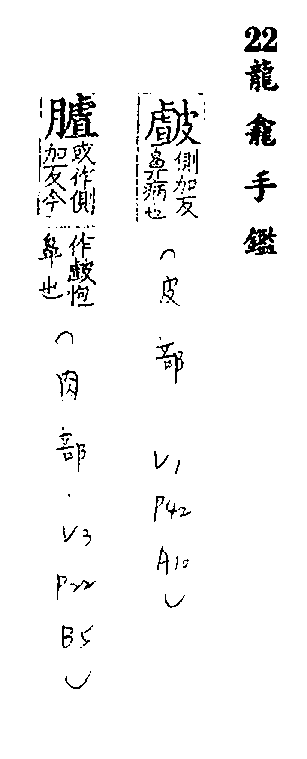 22龍龕手鑑
皻側加反鼻病也(皮部 V1 P42 A10)
䐒或作側加反今作皻皰鼻也(肉部.V3 P22 B5)